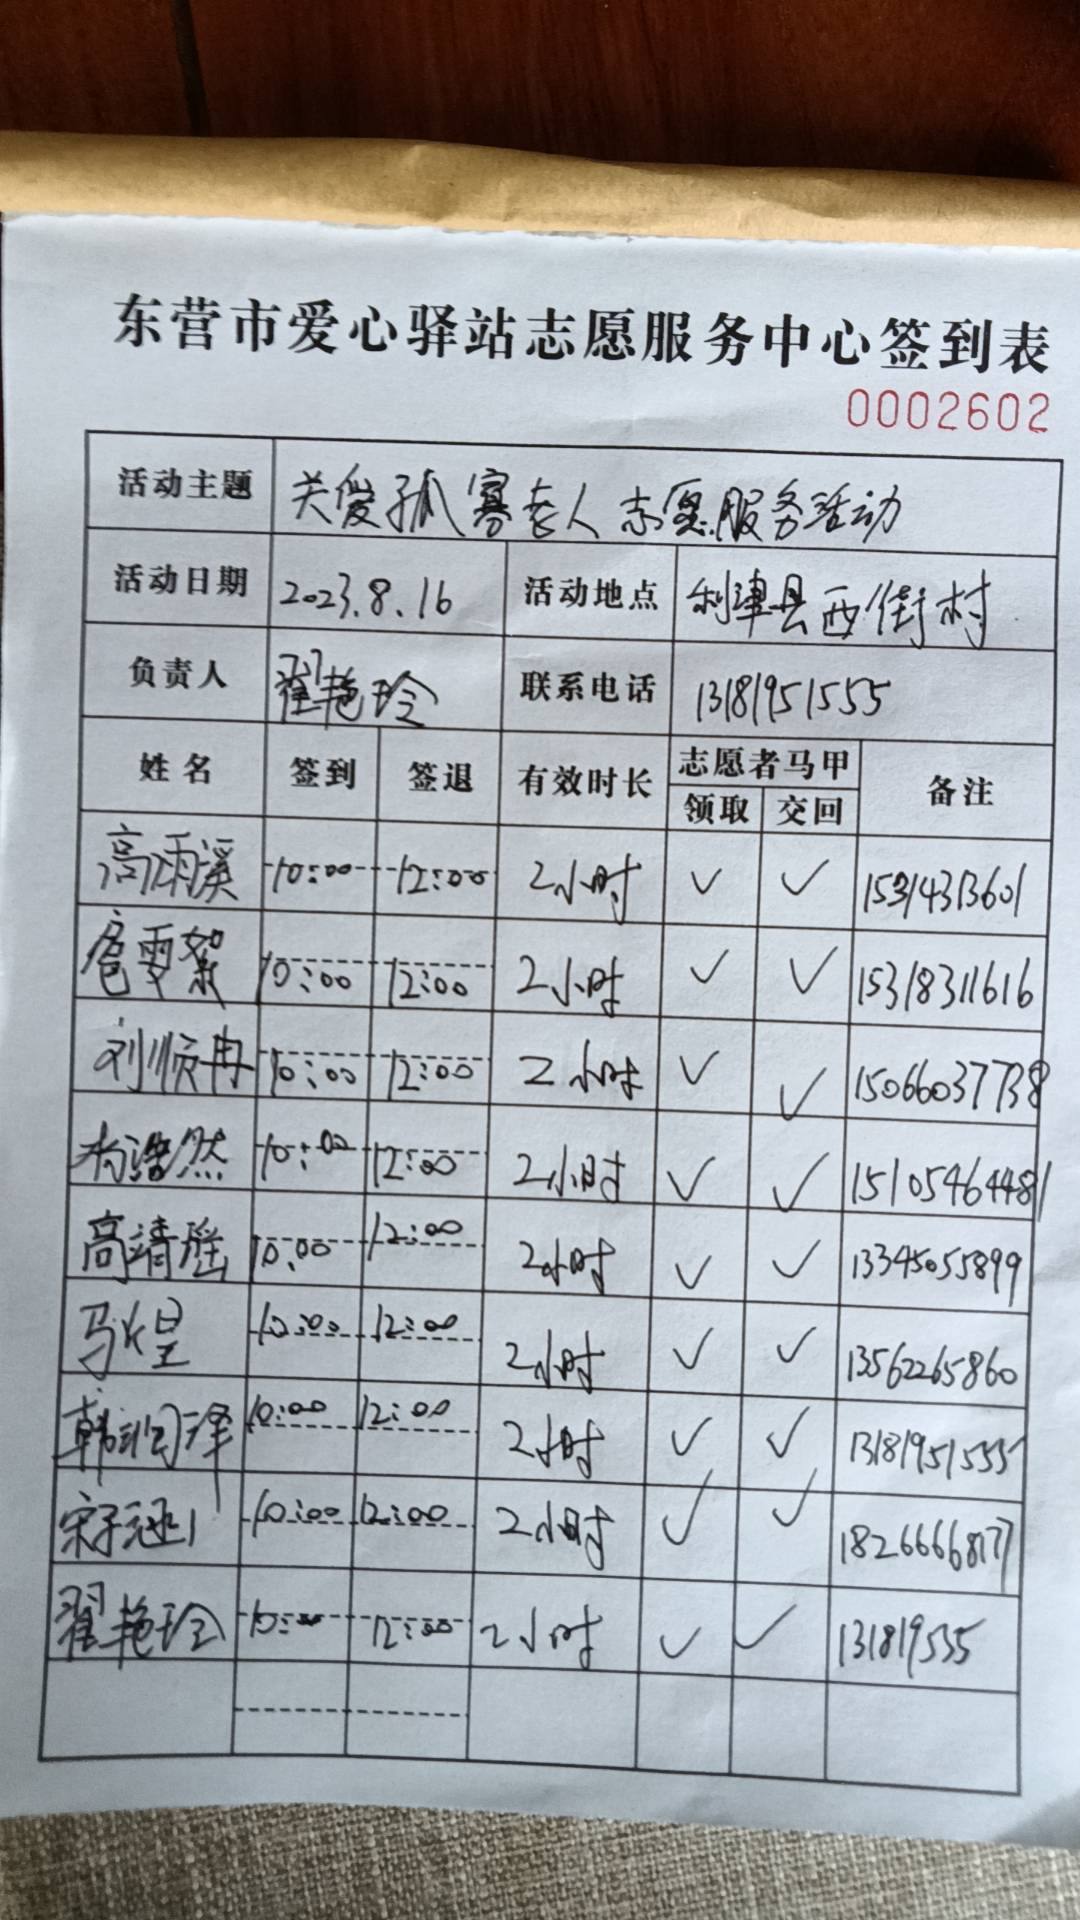 东营市爱心驿站志愿服务中心签到表
0002602
活动主题 关爱孤寡老人志愿服务活动
活动日期 2023.8.16 活动地点 利津县西街村
负责人 翟艳玲 联系电话 13181951555
姓名 签到 签退 有效时长 志愿者马甲 备注
领取 交回
高雨溪 10:00 12:00 2小时 ✓ ✓ 15314313601
扈雯絮 10:00 12:00 2小时 ✓ ✓ 15318311616
刘顺冉 10:00 12:00 2小时 ✓ ✓ 15066037738
杨浩然 10:00 12:00 2小时 ✓ ✓ 15105464481
高靖瑶 10:00 12:00 2小时 ✓ ✓ 13345055899
马煜 10:00 12:00 2小时 ✓ ✓ 13562265860
韩润泽 10:00 12:00 2小时 ✓ ✓ 13181951555
宋子 10:00 12:00 2小时 ✓ ✓ 18266668177
翟艳玲 10:00 12:00 2小时 ✓ ✓ 131819555